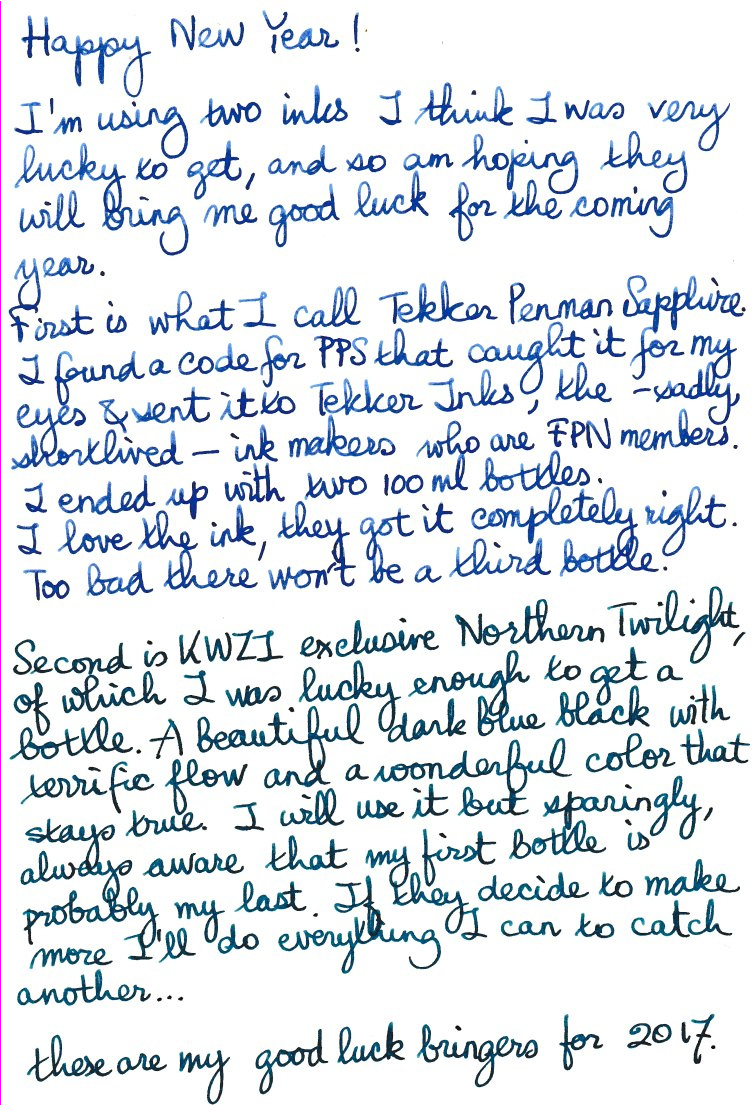 Happy New Year!
I'm using two inks I think I was very
lucky to get, and so am hoping they
will bring me good luck for the coming
year.
First is what I call Tekker Penman Sapphire.
I found a code for PPS that caught it for my
eyes & sent it to Tekker Inks, the - sadly,
shortlived - ink makers who are FPN members.
I ended up with two 100 ml bottles.
I love the ink, they got it completely right.
Too bad there won't be a third bottle.
Second is KWZI exclusive Northern Twilight,
of which I was lucky enough to get a
bottle. A beautiful dark blue black with
terrific flow and a wonderful color that
stays true. I will use it but sparingly,
always aware that my first bottle is
probably my last. If they decide to make
more I'll do everything I can to catch
another...
these are my good luck bringers for 2017.